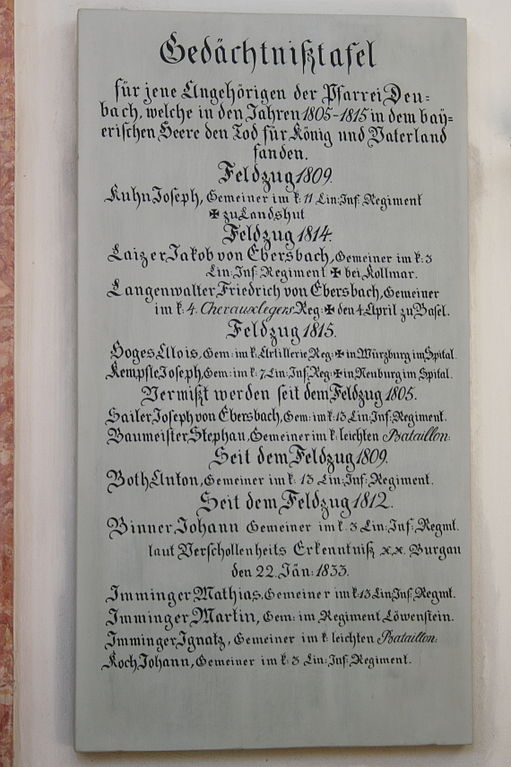 Gedächtnißtafel
für jene Angehörigen der Pfarrei Deu=
bach, welche in den Jahren 1805-1815 in dem bay=
erischen Heere den Tod für König und Vaterland
fanden.
Feldzug 1809.
Kuhn Joseph, Gemeiner im k: 11 Lin: Inf: Regiment
✠ zu Landshut
Feldzug 1814.
Laizer Jakob von Ebersbach, Gemeiner im k: 3
Lin: Inf: Regiment ✠ bei Kollmar.
Langenwalter, Friedrich von Ebersbach, Gemeiner
im k: 4. Cheraux legers Reg: ✠ den 4 April zu Basel.
Feldzug 1815.
Hoges Alois, Gem: im k: Artillerie Reg: ✠ in Würzburg im Spital.
Kempfle Joseph, Gem: im k: 7 Lin: Inf: Reg: ✠ in Neuburg im Spital.
Vermißt werden seit dem Feldzug 1805.
Sailer Joseph von Ebersbach, Gem: im k: 13 Lin: Inf: Regiment.
Baumeister Stephan, Gemeiner im k: leichten Bataillon:
Seit dem Feldzug 1809.
Both Anton, Gemeiner im k: 13 Lin: Inf: Regiment.
Seit dem Feldzug 1812.
Binner Johann Gemeiner im k. 3 Lin: Inf: Regmt.
laut Verschollenheits Erkenntniß x.x. Burgau
den 22. Jän: 1833.
Imminger Mathias, Gemeiner im k 13 Lin Inf: Regmt.
Imminger Martin, Gem: im Regiment Löwenstein.
Imminger Ignatz, Gemeiner im k leichten Bataillon:
Koch Johann, Gemeiner im k: 3 Lin: Inf: Regiment.